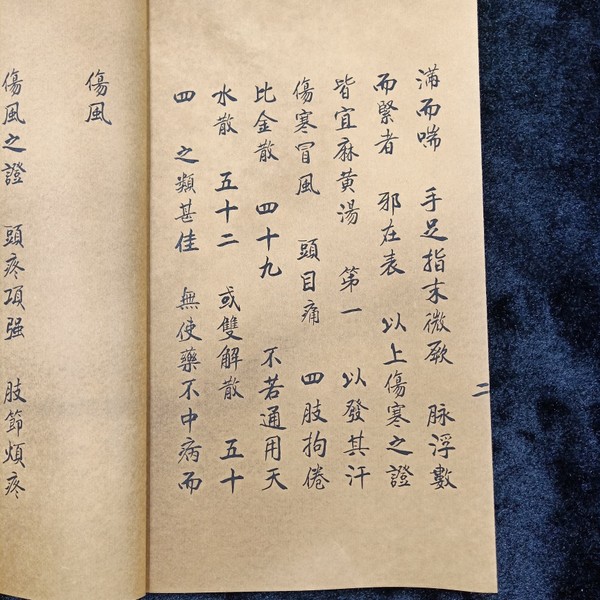 滿而喘 手足指末微厥 脉浮數
而緊者 邪在表 以上傷寒之證
皆宜麻黄湯 第一 以發其汗
傷寒冒風 頭目痛 四肢拘倦
比金散 四十九 不若通用天
水散 五十二 或雙解散 五十
四 之類甚佳 無使藥不中病而
二
傷風
傷風之證 頭疼項强 肢節煩疼